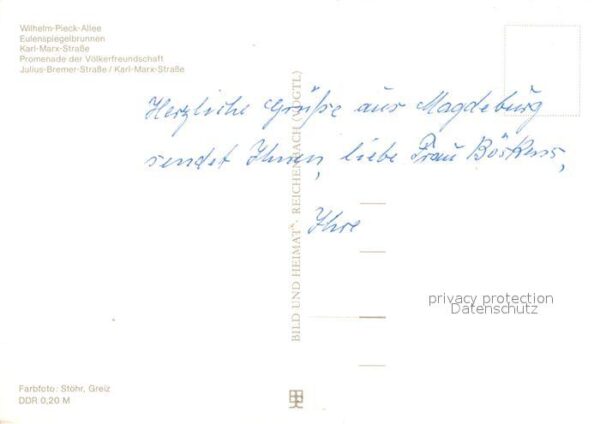 Wilhelm-Pieck-Allee
Eulenspiegelbrunnen
Karl-Marx-Straße
Promenade der Völkerfreundschaft
Julius-Bremer-Straße / Karl-Marx-Straße
Herzliche Grüße aus Magdeburg
sendet Ihnen, liebe Frau
Ihre
BILD UND HEIMAT · REICHENBACH (VOGTL)
privacy protection
Datenschutz
Farbfoto: Stöhr, Greiz
DDR 0,20 M